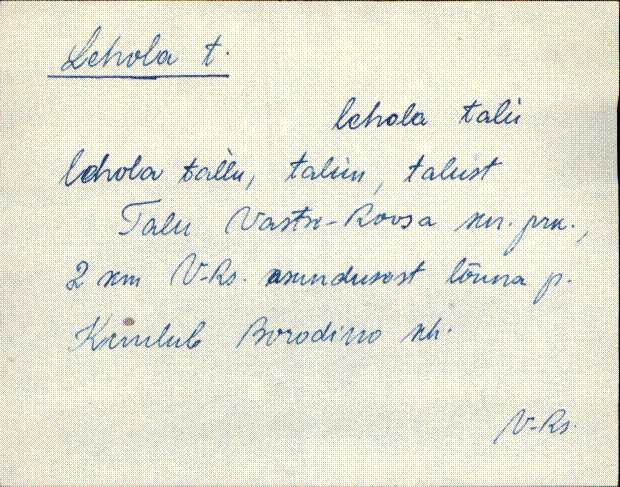 Lehola t.
lehola talu
lehola tallu, talun, talust
Talu Vastse-Roosa kn. prk.,
2 km V-Rs. asundusest lõuna p.
Kuulub Borodino kh.
V-Rs.